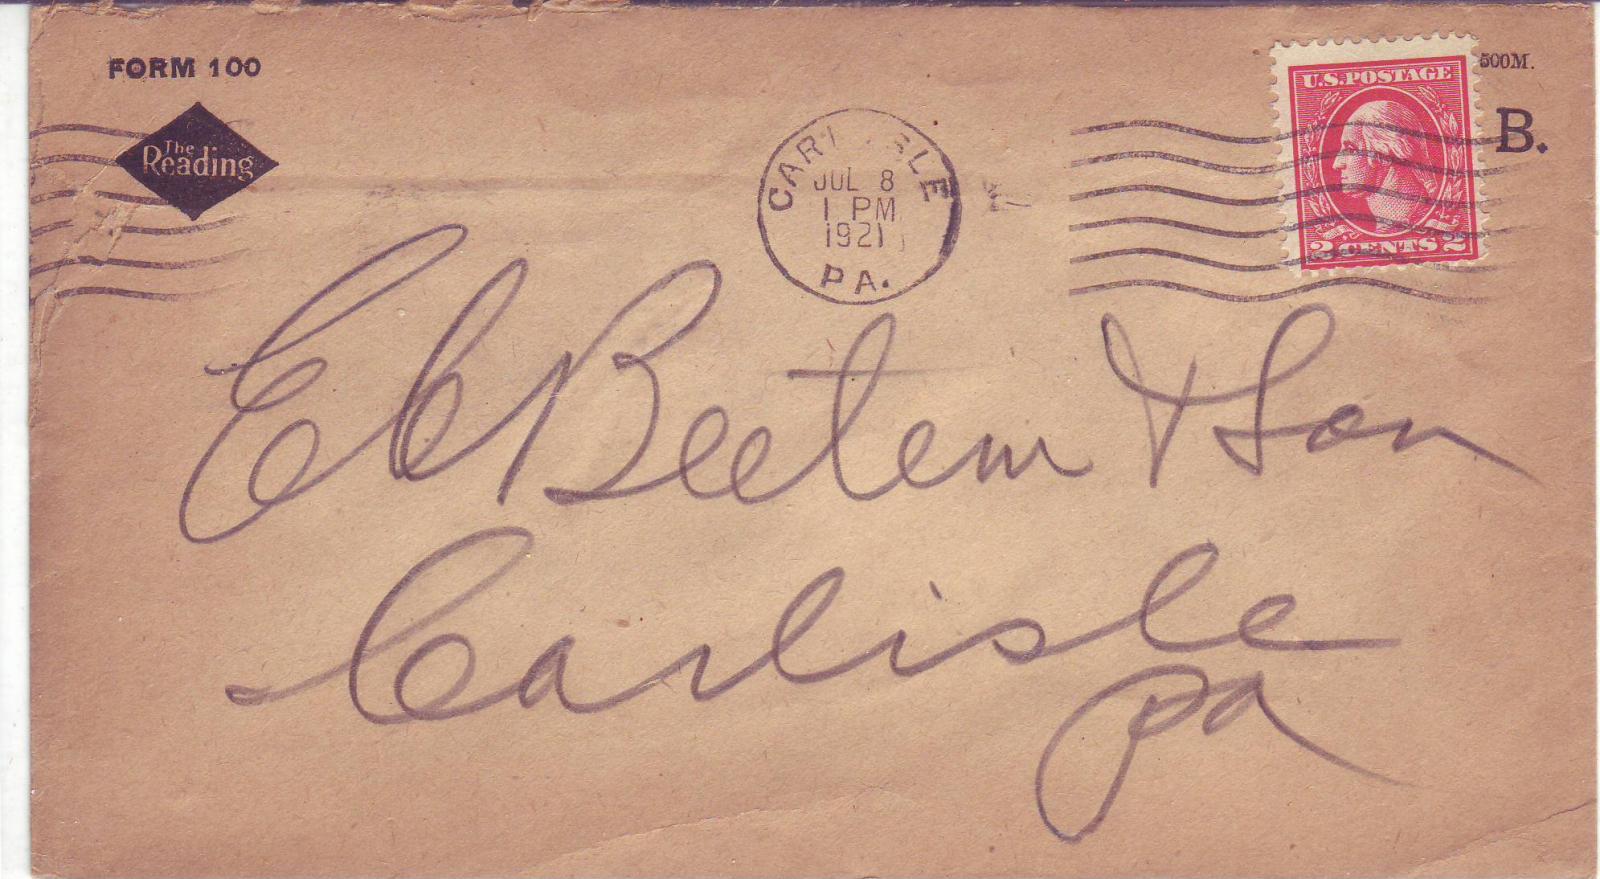 FORM 100
500M.
The
Reading
B.
U.S.POSTAGE
2 CENTS 2
CARLISLE
JUL 8
1 PM
1921
PA.
Beetem & Son
Carlisle
Pa